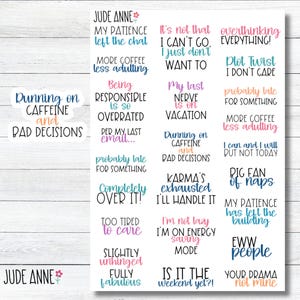 JUDE ANNE
MY PATIENCE
left the chat
MORE COFFEE
less adulting
Being
RESPONSIBLE
IS SO
OVERRATED
PER MY LAST
email...
probably late
FOR SOMETHING
Completely
OVER IT!
TOO TIRED
to care
SLIGHTLY
unhinged
FULLY
fabulous
It's not that
I CAN'T GO,
I just don't
WANT TO
My last
NERVE
IS ON
VACATION
Running on
CAFFEINE
and
BAD DECISIONS
KARMA'S
exhausted
I'LL HANDLE IT
I'm not lazy
I'M ON ENERGY
saving
MODE
IS IT THE
weekend yet?!
overthinking
EVERYTHING!
Plot Twist
I DON'T CARE
probably late
FOR SOMETHING
MORE COFFEE
less adulting
I can and I will
BUT NOT TODAY
BIG FAN
of naps
MY PATIENCE
has left the
building
EWW
people
YOUR DRAMA
not mine
Running on
CAFFEINE
and
BAD DECISIONS
JUDE ANNE